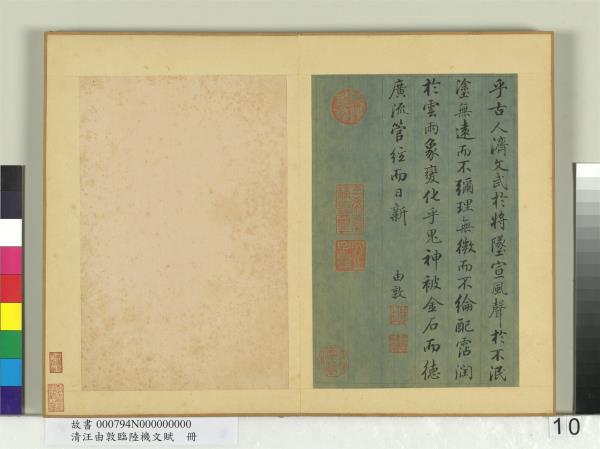 乎古人濟文武於將墜宣風聲於不泯
塗無遠而不彌理無微而不綸配霑潤
於雲雨象變化乎鬼神被金石而德
廣流管絃而日新
由敦
故書 000794N000000000
清汪由敦臨陸機文賦 冊
10